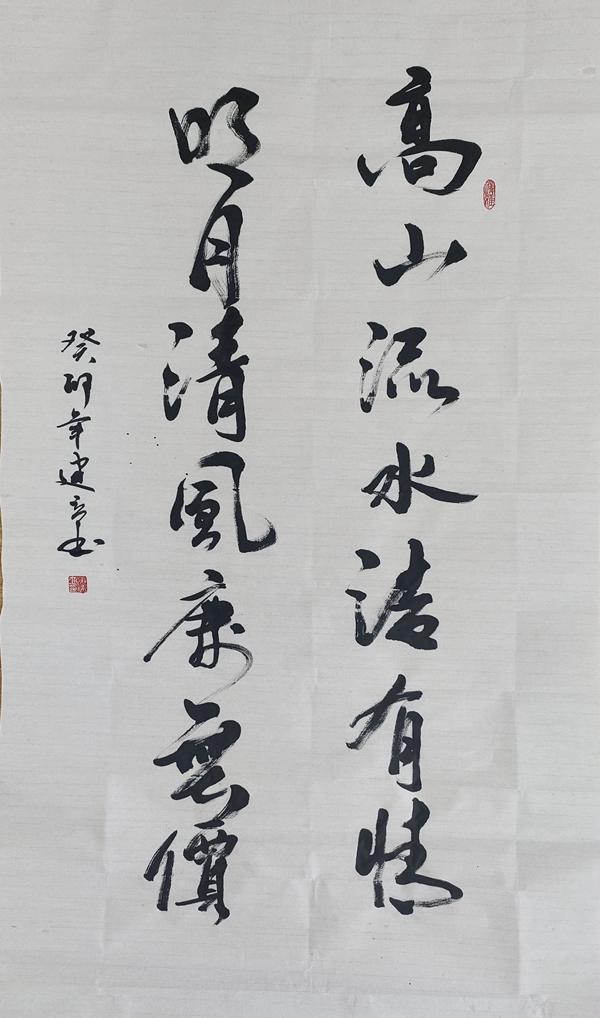 高山流水洁有情
明月清風廉無價
癸卯年建书